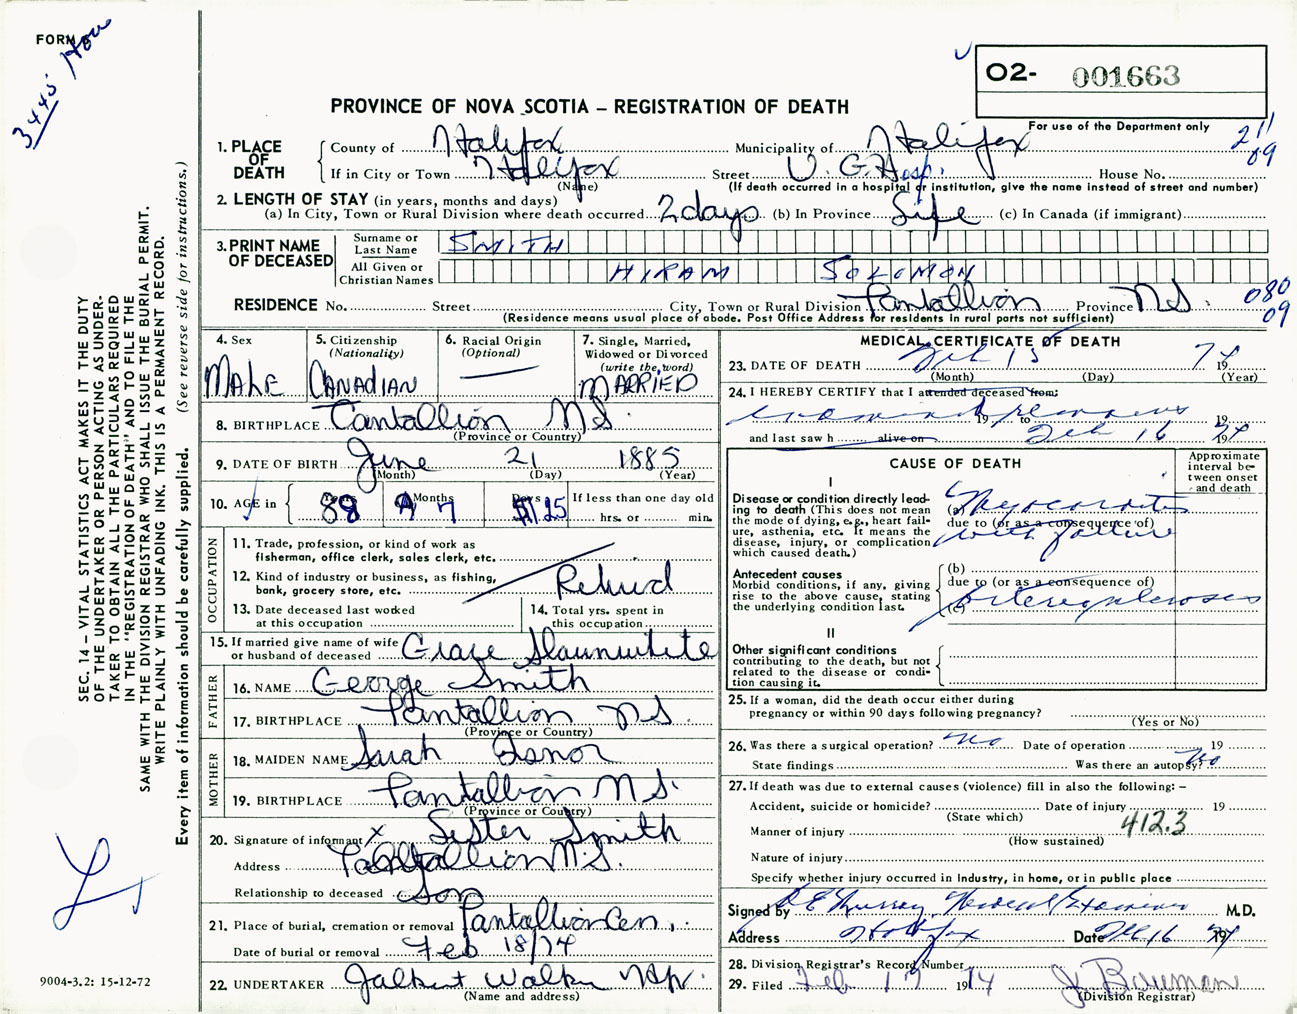 FORM
3445 Hou
O2- 001663
For use of the Department only
211
09
PROVINCE OF NOVA SCOTIA – REGISTRATION OF DEATH
1. PLACE OF DEATH
County of Halifax Municipality of Halifax
If in City or Town Halifax Street V. G. Hosp. House No.
(Name) (If death occurred in a hospital or institution, give the name instead of street and number)
2. LENGTH OF STAY (in years, months and days)
(a) In City, Town or Rural Division where death occurred 2 days (b) In Province Life (c) In Canada (if immigrant)
3. PRINT NAME OF DECEASED
Surname or Last Name SMITH
All Given or Christian Names HIRAM SOLOMON
RESIDENCE No. Street City, Town or Rural Division Tantallion Province N.S.
080
09
(Residence means usual place of abode. Post Office Address for residents in rural parts not sufficient)
4. Sex MALE
5. Citizenship (Nationality) CANADIAN
6. Racial Origin (Optional) —
7. Single, Married, Widowed or Divorced (write the word) MARRIED
8. BIRTHPLACE Tantallion N.S.
(Province or Country)
9. DATE OF BIRTH June 21 1885
(Month) (Day) (Year)
10. AGE in Years 88 Months 7 Days 25 If less than one day old
hrs. or min.
OCCUPATION
11. Trade, profession, or kind of work as fisherman, office clerk, sales clerk, etc.
12. Kind of industry or business, as fishing, bank, grocery store, etc. Retired
13. Date deceased last worked at this occupation
14. Total yrs. spent in this occupation
15. If married give name of wife or husband of deceased Grace Slaunwhite
FATHER
16. NAME George Smith
17. BIRTHPLACE Tantallion N.S.
(Province or Country)
MOTHER
18. MAIDEN NAME Sarah Isnor
19. BIRTHPLACE Tantallion N.S.
(Province or Country)
20. Signature of informant X Lester Smith
Address Tantallion N.S.
Relationship to deceased Son
21. Place of burial, cremation or removal Tantallion Cem.
Date of burial or removal Feb 18/74
22. UNDERTAKER
(Name and address)
MEDICAL CERTIFICATE OF DEATH
23. DATE OF DEATH Feb 15 1974
(Month) (Day) (Year)
24. I HEREBY CERTIFY that I attended deceased from:
19 to 19
and last saw h alive on Feb 16 1974
CAUSE OF DEATH
Approximate interval between onset and death
I
Disease or condition directly leading to death (This does not mean the mode of dying, e.g., heart failure, asthenia, etc. It means the disease, injury, or complication which caused death.)
(a) Myocarditis
due to (or as a consequence of)
with failure
Antecedent causes
Morbid conditions, if any, giving rise to the above cause, stating the underlying condition last.
(b)
due to (or as a consequence of)
(c) arteriosclerosis
II
Other significant conditions
contributing to the death, but not related to the disease or condition causing it.
25. If a woman, did the death occur either during pregnancy or within 90 days following pregnancy?
(Yes or No)
26. Was there a surgical operation? no Date of operation 19
State findings Was there an autopsy? No
27. If death was due to external causes (violence) fill in also the following: –
Accident, suicide or homicide? Date of injury 19
(State which)
412.3
Manner of injury
(How sustained)
Nature of injury
Specify whether injury occurred in Industry, in home, or in public place
Signed by Murray Medical Examiner M.D.
Address Halifax Date Feb 16 1974
28. Division Registrar's Record Number
29. Filed Feb 17 1974 J. Bauman
(Division Registrar)
SEC. 14 – VITAL STATISTICS ACT MAKES IT THE DUTY
OF THE UNDERTAKER OR PERSON ACTING AS UNDER-
TAKER TO OBTAIN ALL THE PARTICULARS REQUIRED
IN THE "REGISTRATION OF DEATH" AND TO FILE THE
SAME WITH THE DIVISION REGISTRAR WHO SHALL ISSUE THE BURIAL PERMIT.
WRITE PLAINLY WITH UNFADING INK. THIS IS A PERMANENT RECORD.
Every item of information should be carefully supplied. (See reverse side for instructions.)
9004-3.2: 15-12-72